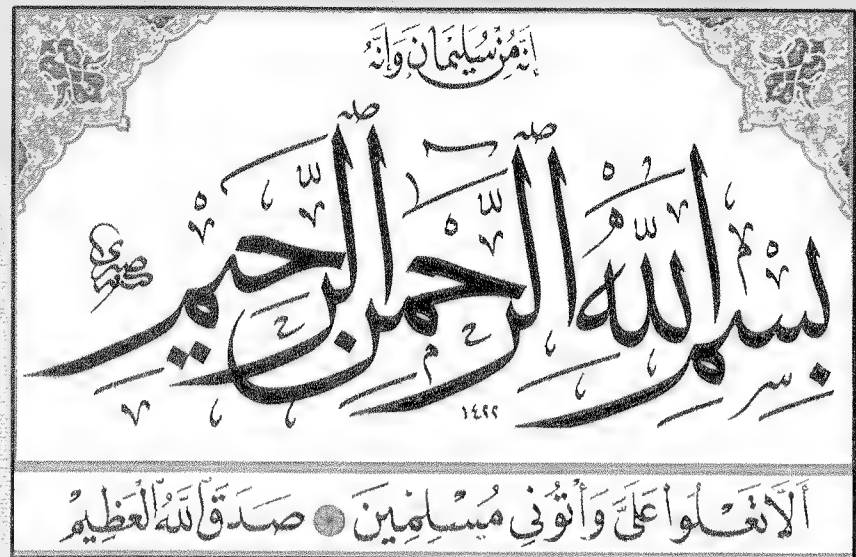 إِنَّهُ مِنْ سُلَيْمَانَ وَإِنَّهُ
بِسْمِ اللَّهِ الرَّحْمٰنِ الرَّحِيمِ
١٤٢٢
أَلَّا تَعْلُوا عَلَيَّ وَأْتُونِي مُسْلِمِينَ صَدَقَ اللَّهُ الْعَظِيمْ